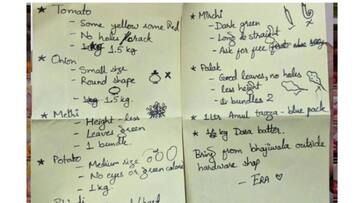 ★ Tomato
- Some yellow some Red
- No holes / crack
- 1.5 kg
★ Onion
- Small size
- Round shape
- 1 kg 1.5 kg.
★ Methi
- Height - less
- Leaves green
- 1 bundle.
★ Potato
- Medium size
- No eyes or green color
- 1 kg.
★ Mirchi
- Dark green
- Long & straight
- Ask for free
★ Palak
- Good leaves, no holes
- less height
- bundles 2
★ 1 Ltr Amul taaza - blue pack
★ 1/2 kg Dosa batter.
Bring from bhajiwala outside
hardware shop
- ERA ♡